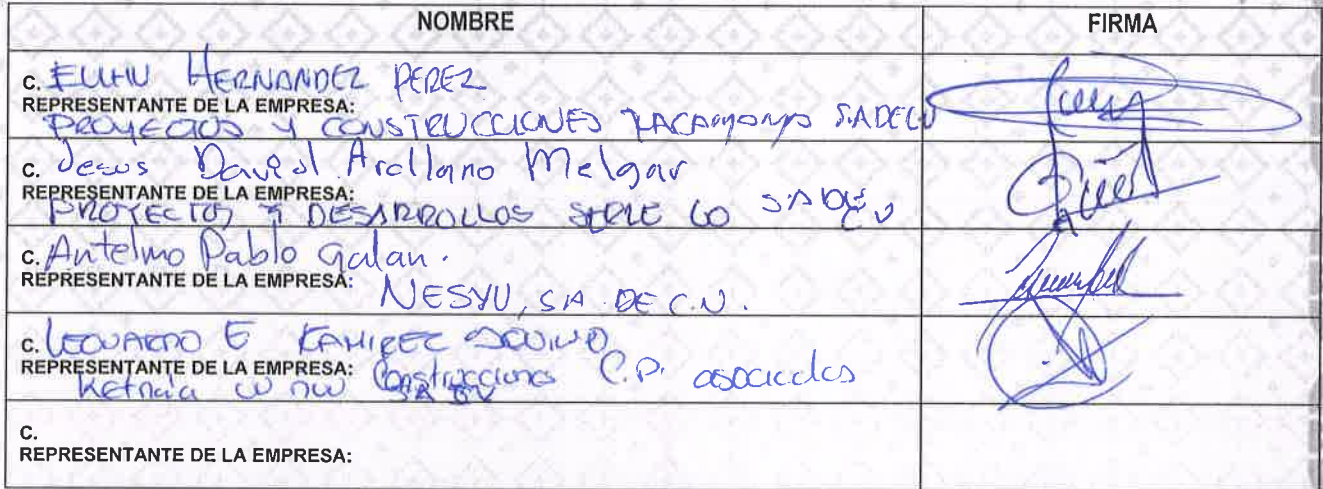 NOMBRE
FIRMA
C. ELIHU HERNANDEZ PEREZ
REPRESENTANTE DE LA EMPRESA:
PROYECTOS Y CONSTRUCCIONES S.A DE CV
C. Jesus David Arellano Melgar
REPRESENTANTE DE LA EMPRESA:
PROYECTOS Y DESARROLLOS SERIE 60 SA DE CV
C. Antelmo Pablo Galan.
REPRESENTANTE DE LA EMPRESA:
NESYU, SA DE C.V.
C. LEONARDO E RAMIREZ
REPRESENTANTE DE LA EMPRESA:
Construcciones C.P. asociados
C.
REPRESENTANTE DE LA EMPRESA: